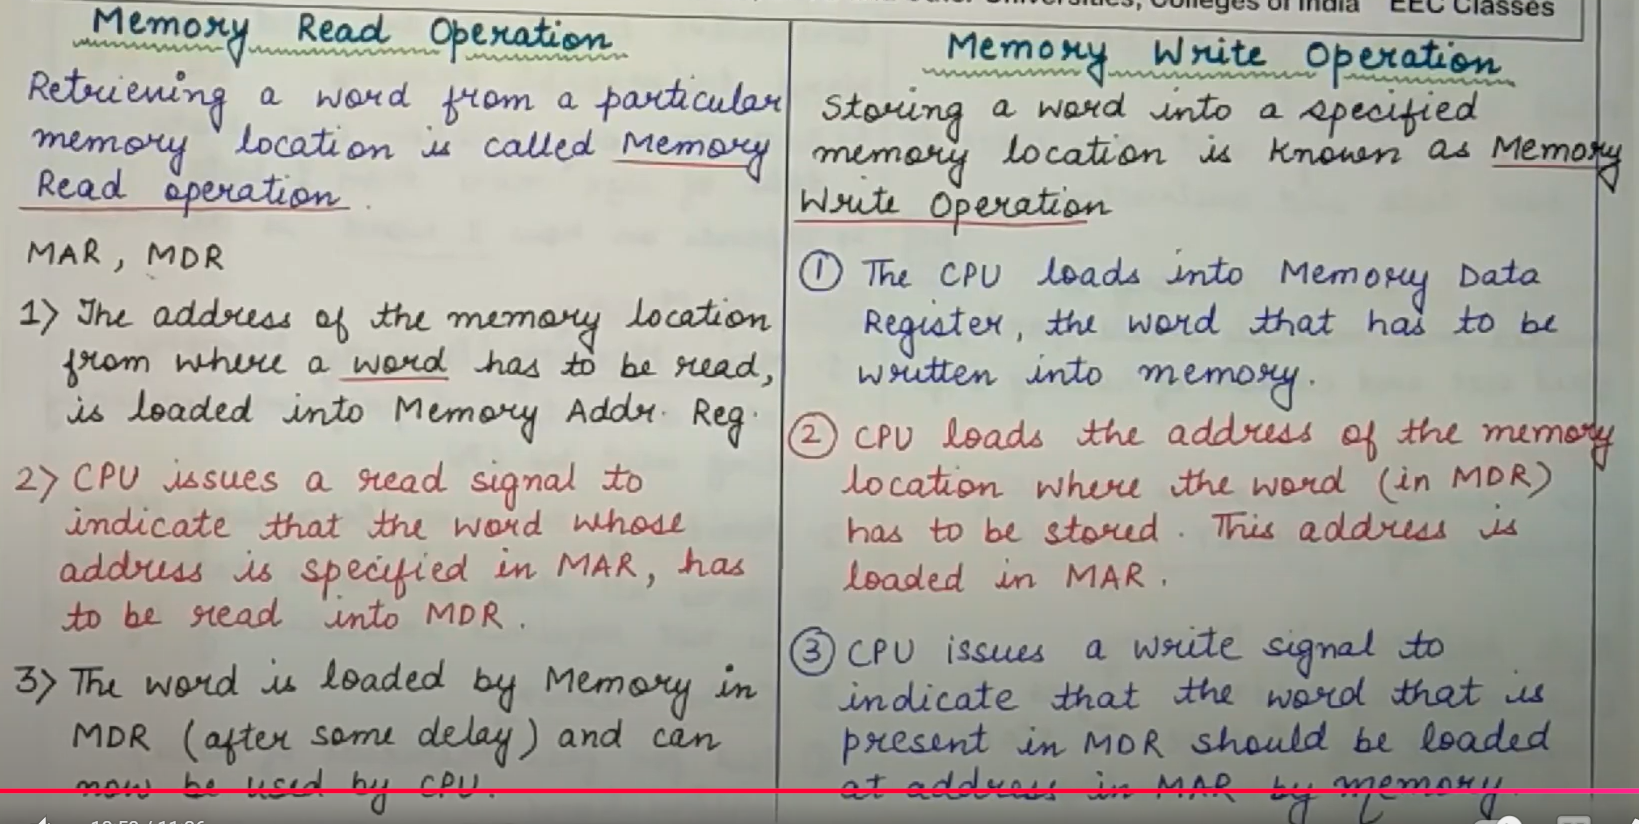 Universities, Colleges of India EEC Classes
Memory Read Operation
Retrieving a word from a particular
memory location is called Memory
Read operation.
MAR, MDR
1) The address of the memory location
from where a word has to be read,
is loaded into Memory Addr. Reg.
2) CPU issues a read signal to
indicate that the word whose
address is specified in MAR, has
to be read into MDR.
3) The word is loaded by Memory in
MDR (after some delay) and can
now be used by CPU.
Memory Write Operation
Storing a word into a specified
memory location is known as Memory
Write Operation
1 The CPU loads into Memory Data
Register, the word that has to be
written into memory.
2 CPU loads the address of the memory
location where the word (in MDR)
has to be stored. This address is
loaded in MAR.
3 CPU issues a write signal to
indicate that the word that is
present in MDR should be loaded
at address in MAR by memory.